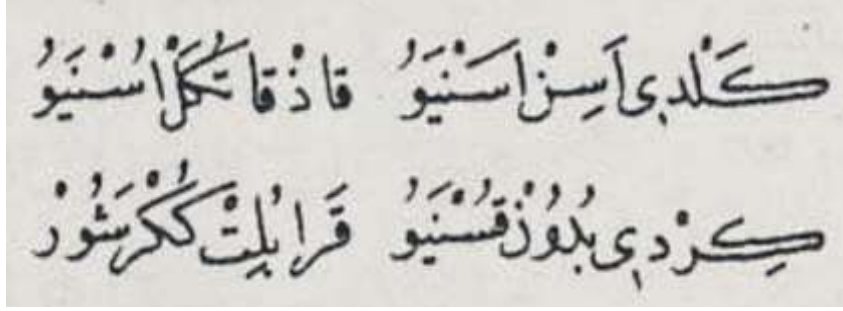 كَلْدِى اَسِنْ اَسْنَيوُ قاذْقا تُكَلْ اُسْنَيوُ
كِرْدِى بُدُونْ قَسْنَيوُ قَرا بُلِتْ كُكْرَشُورْ